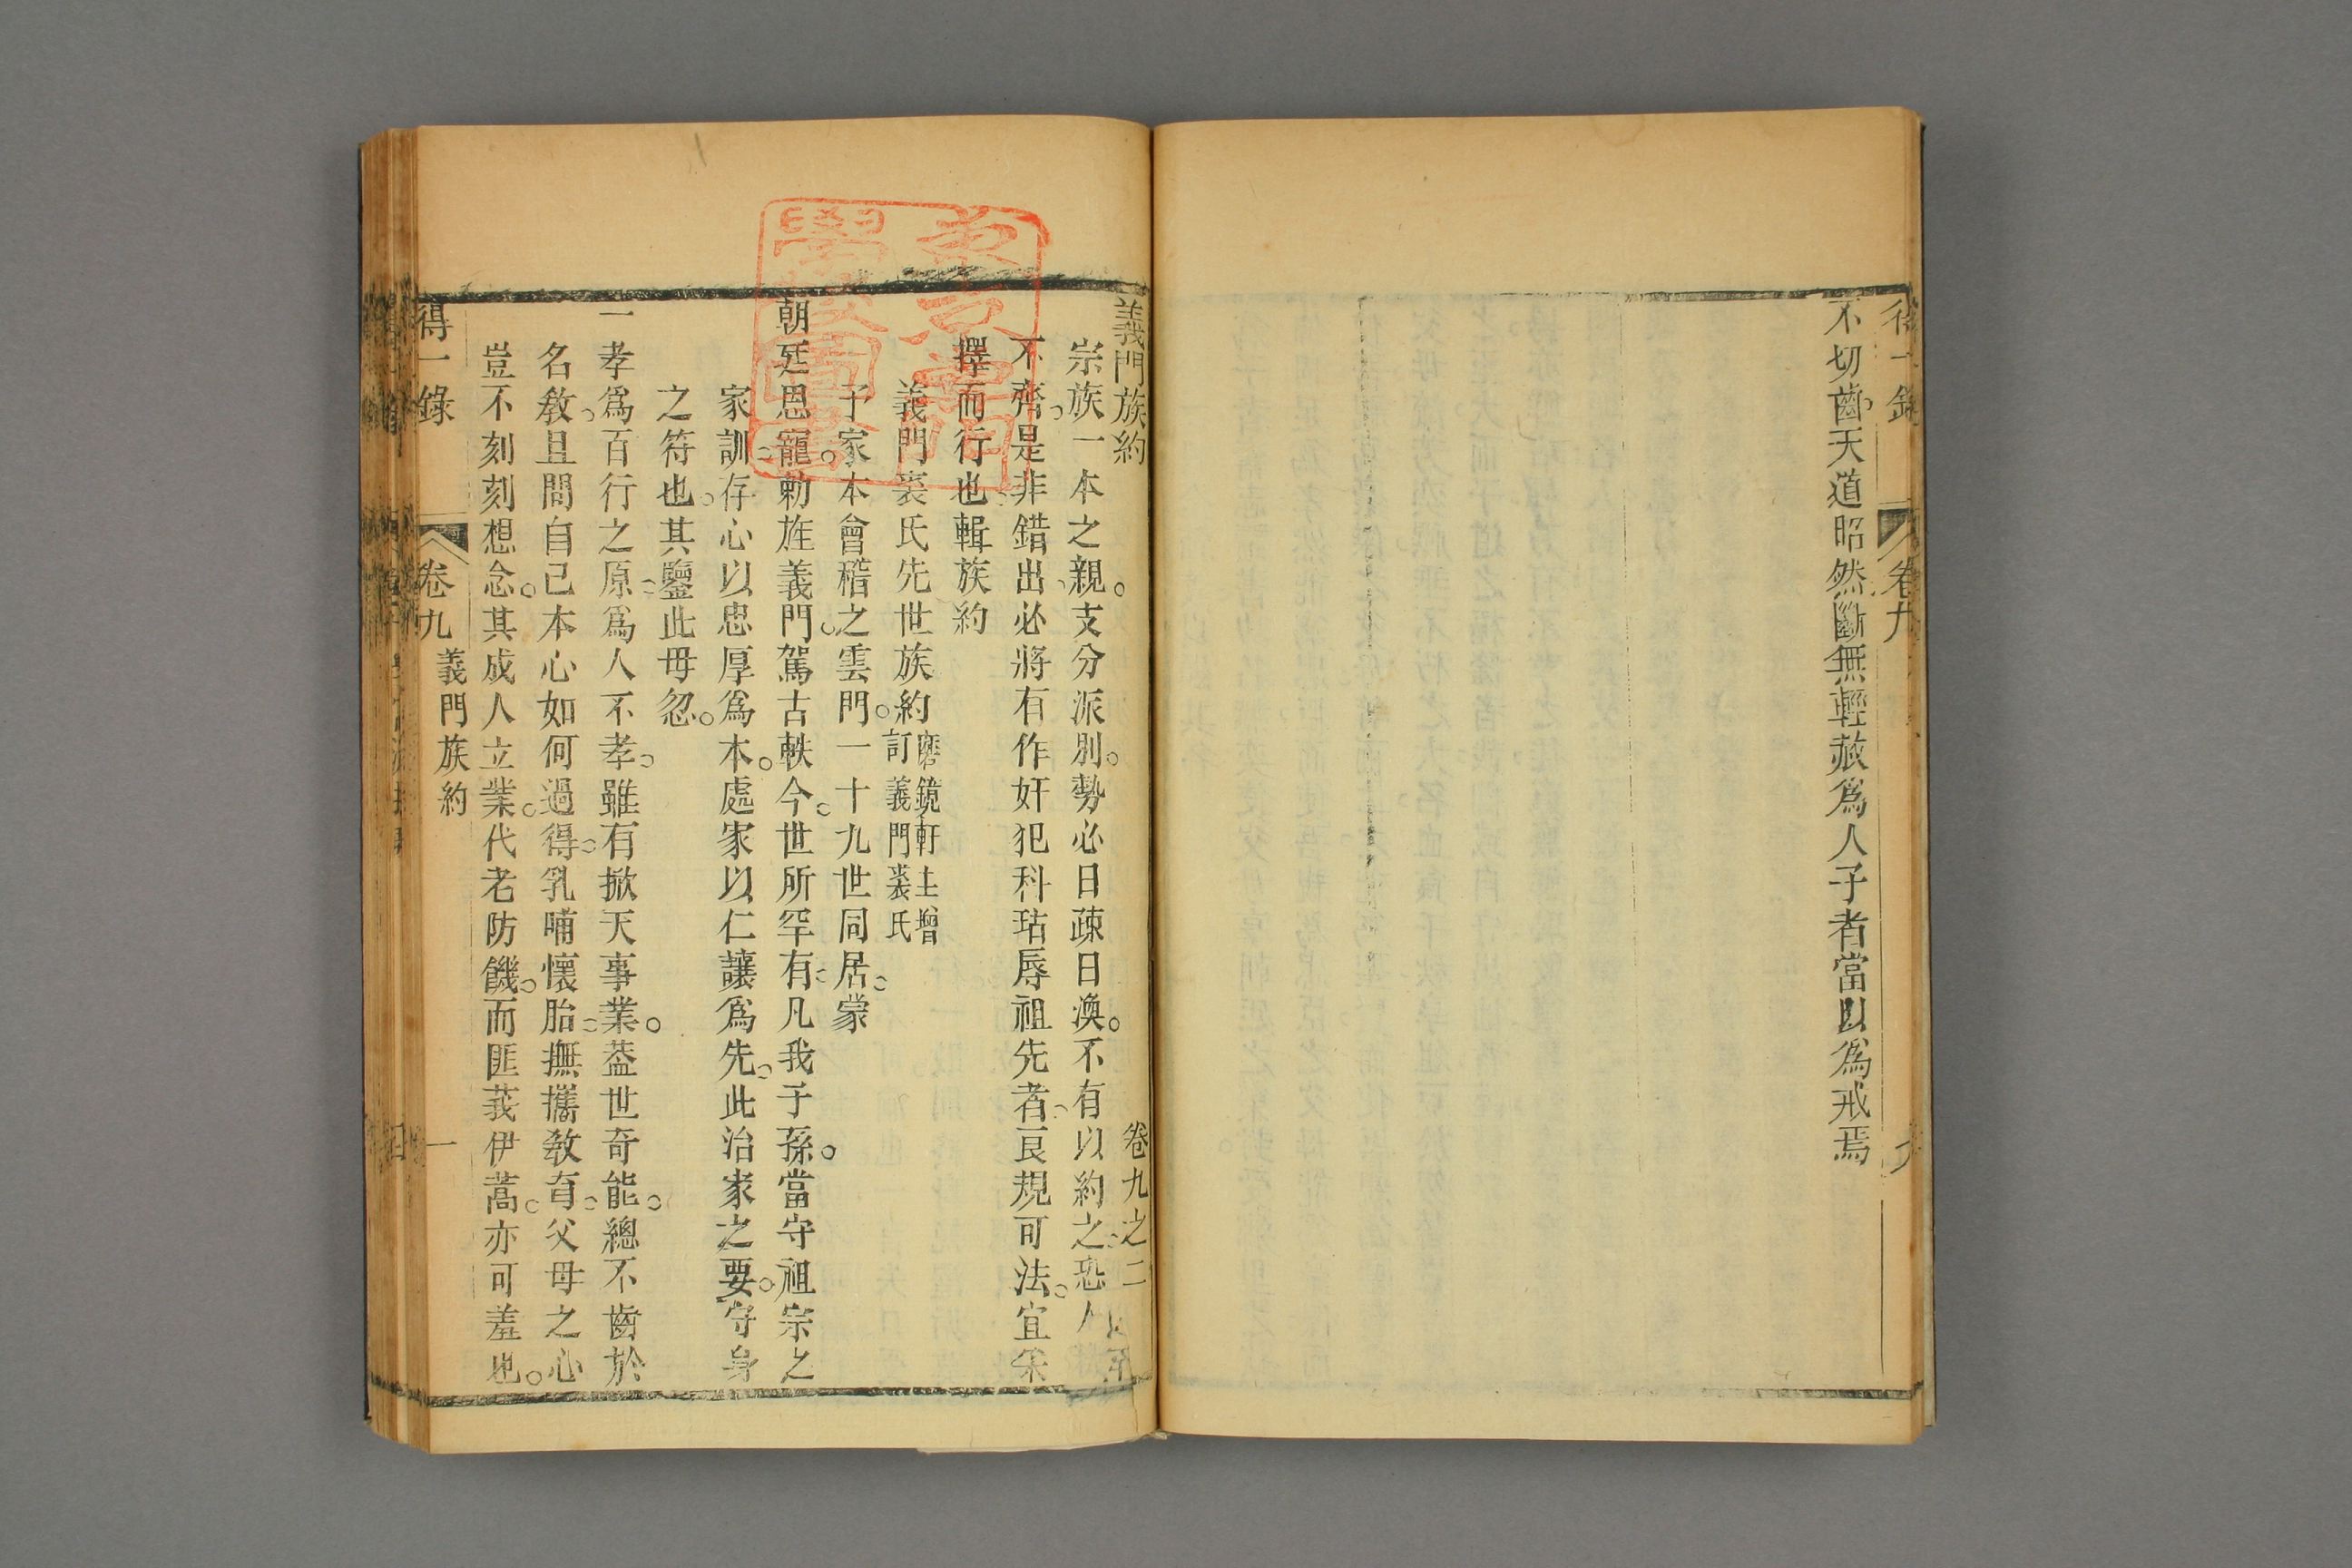 得一錄 卷九
不切齒天道昭然斷無輕蔽爲人子者當以爲戒焉
義門族約 卷九之二
宗族一本之親。支分派別。勢必日疎日渙。不有以約之。恐人
不齊。是非錯出。必將有作奸犯科玷辱祖先者。良規可法。宜采
擇而行也輯族約
義門裘氏先世族約
磨鏡軒主增
訂義門裘氏
予家本會稽之雲門。一十九世同居。蒙
朝廷恩寵。勅旌義門。駕古軼今。世所罕有。凡我子孫。當守祖宗之
家訓。存心以忠厚爲本。處家以仁讓爲先。此治家之要。守身
之符也。其鑒此毋忽。
一孝爲百行之原。爲人不孝。雖有掀天事業。葢世奇能。總不齒於
名敎。且問自己本心如何過得。乳哺懷胎。撫攜敎育。父母之心
豈不刻刻想念。其成人立業。代老防饑。而匪莪伊蒿。亦可羞也。
得一錄 卷九 義門族約 一